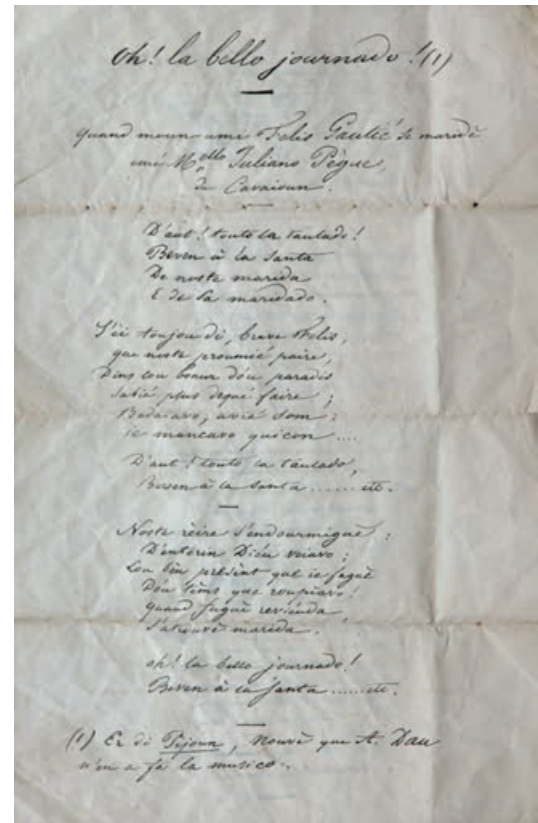 Oh! la bello journado! (1)
Quand moun ami Felis Gautié se maridè
emé Mello Juliano Pègue,
de Cavaioun.
D'aut! touto la taulado!
Beven à la santa
De noste marida
E de sa maridado.
S'èi toujou di, brave Felis,
que noste proumié paire,
Dins lou beau dóu paradis
Sabié plus deque faire;
Badaiavo, avié som:
ie mancavo quicon....
D'aut! touto la taulado,
Beven à la santa ...... etc.
Noste rèire s'endourmiguè:
D'enterin Diéu veiavo;
Lou bèu present que ie faguè
Dóu tèms que roupiavo!
Quand fuguè reviéuda,
S'atrouvè marida.
Oh! la bello journado!
Beven à la santa ...... etc.
(1) Er di Pijoun, nouvè que A. Dau
n'en a fa la musico.